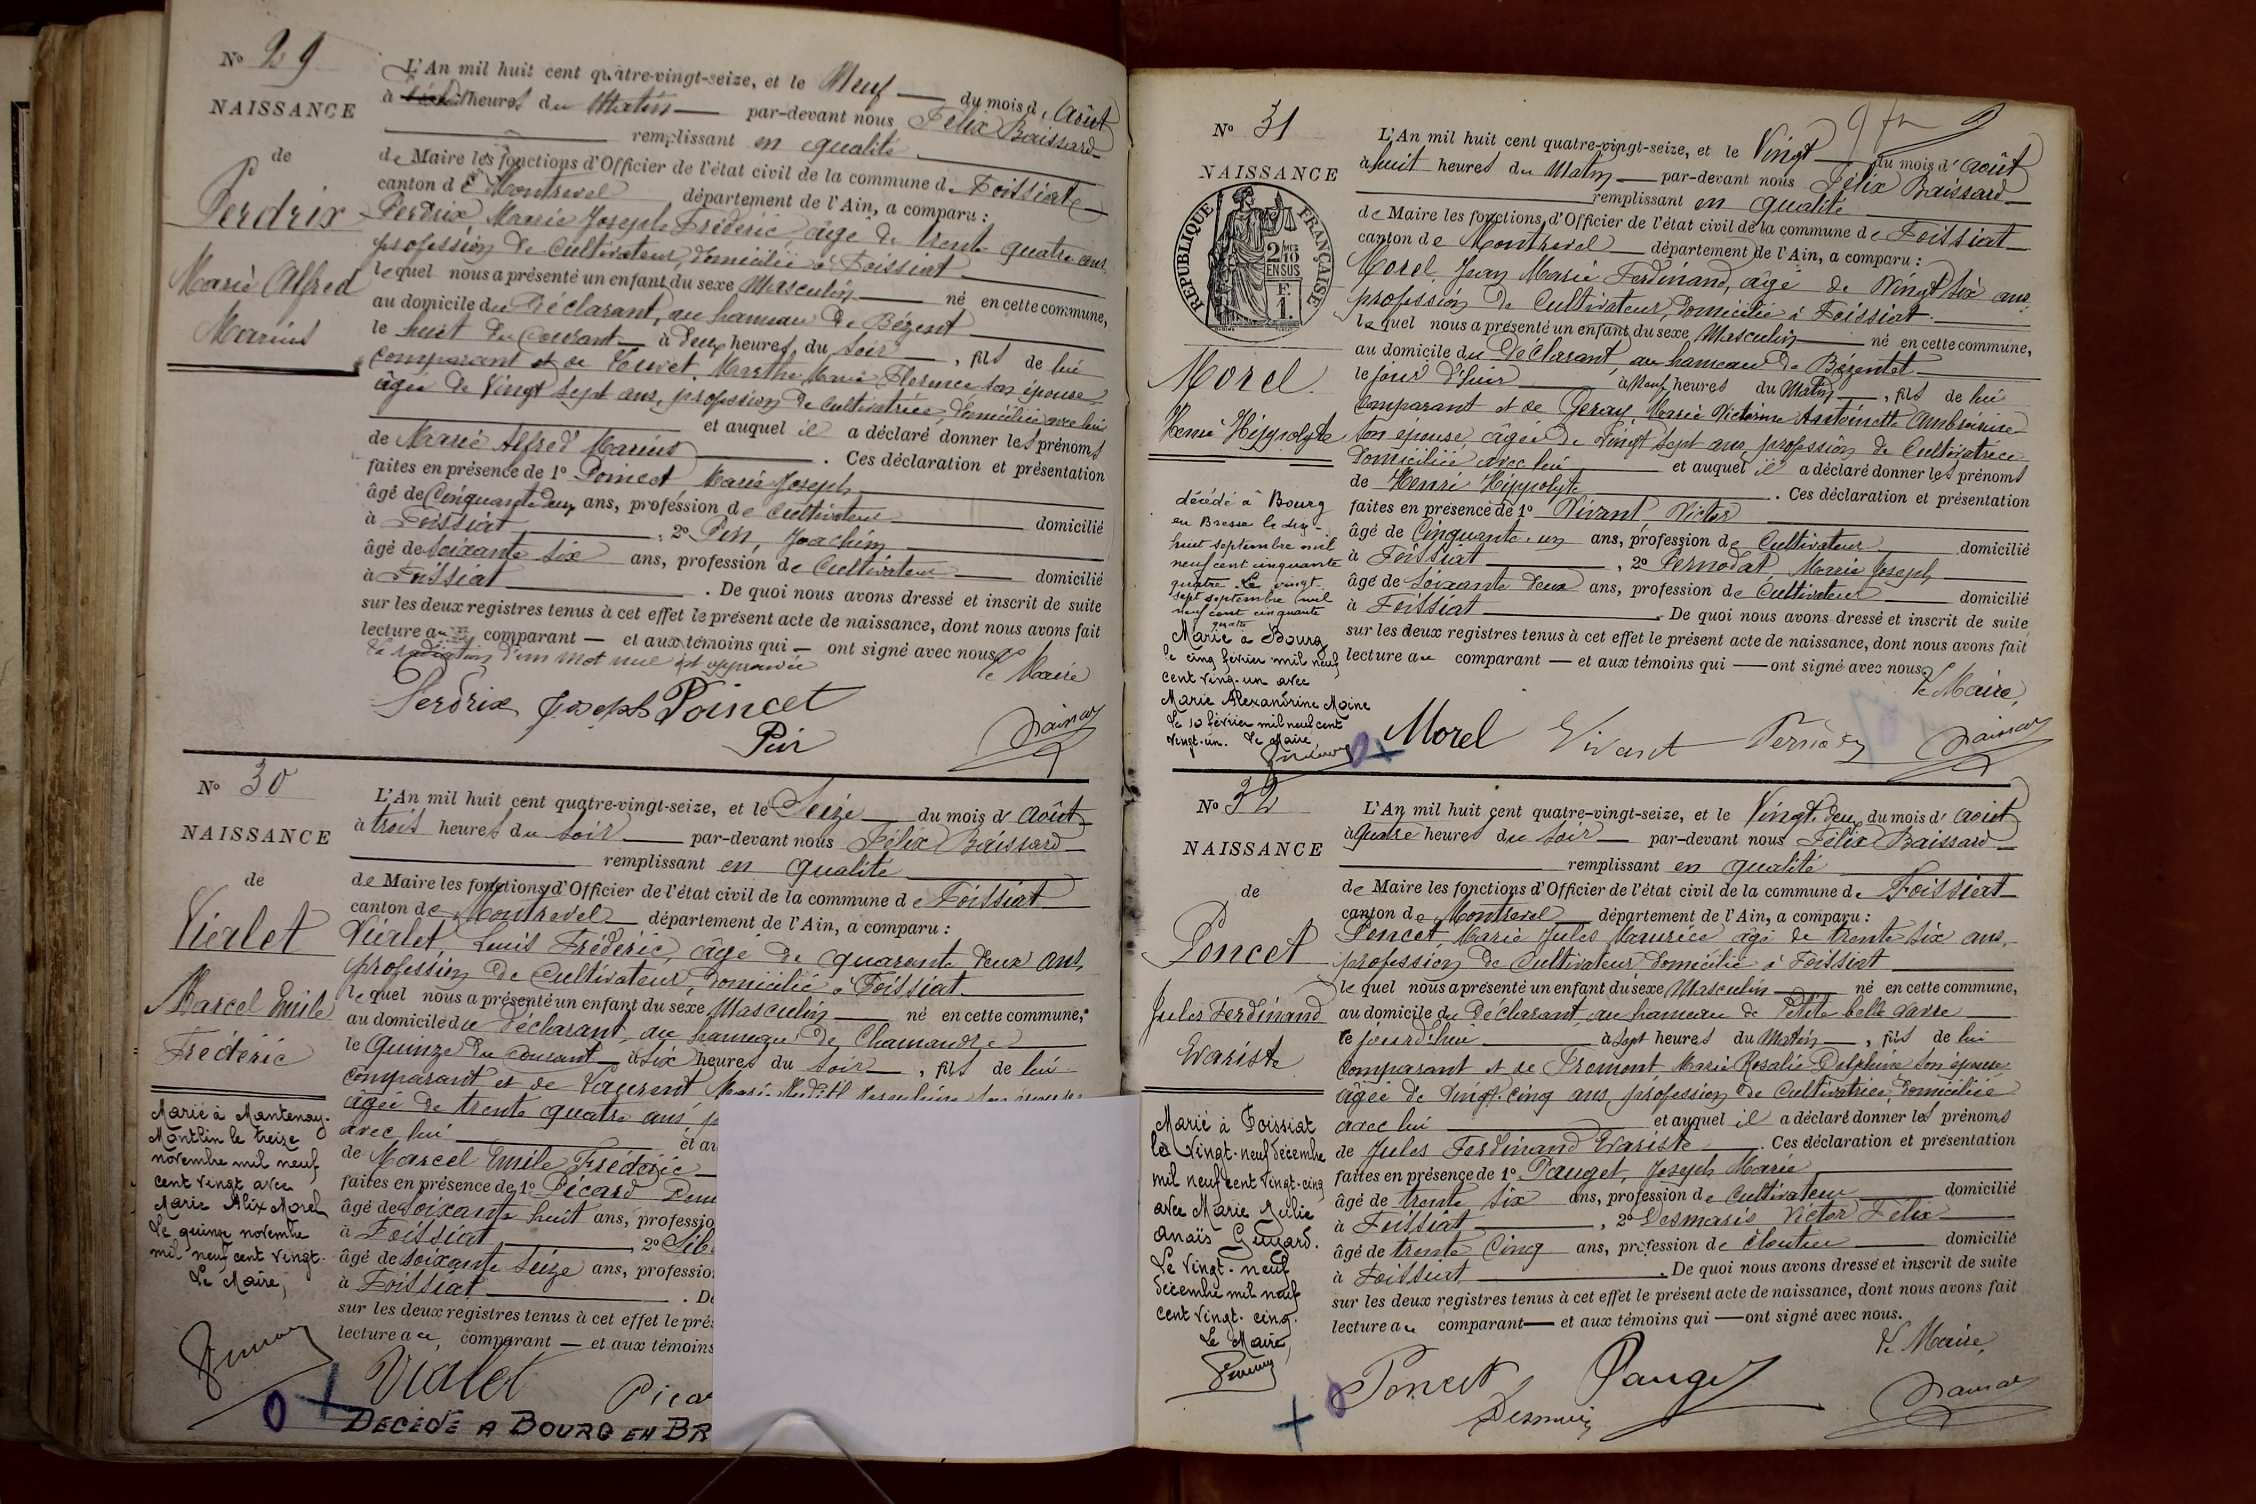 No 29
NAISSANCE
de
Perdrix
Marie Alfred
Marius
L'An mil huit cent quatre-vingt-seize, et le Neuf du mois d'Août
à heures du Matin par-devant nous Félix Baissard
remplissant en qualité
de Maire les fonctions d'Officier de l'état civil de la commune de Foissiat
canton de Montrevel département de l'Ain, a comparu :
Perdrix Marie Joseph Frédéric, âgé de trente quatre ans
profession de Cultivateur, domicilié à Foissiat
lequel nous a présenté un enfant du sexe Masculin né en cette commune,
au domicile du Déclarant, au hameau de Bézent
le huit du Courant à deux heures du soir, fils de lui
comparant et de Marthe Marie Florence son épouse
âgée de Vingt Sept ans, profession de cultivatrice, domiciliée avec lui
et auquel il a déclaré donner les prénoms
de Marie Alfred Marius . Ces déclaration et présentation
faites en présence de 1º Poincet Marie Joseph
âgé de Cinquante deux ans, profession de Cultivateur domicilié
à Foissiat , 2º Pin, Joachim
âgé de soixante six ans, profession de Cultivateur domicilié
à Foissiat . De quoi nous avons dressé et inscrit de suite
sur les deux registres tenus à cet effet le présent acte de naissance, dont nous avons fait
lecture au comparant — et aux témoins qui — ont signé avec nous
la radiation d'un mot nul est approuvée
Le Maire
Perdrix Joseph Poincet
Pin
No 30
NAISSANCE
de
Vialet
Marcel Emile
Frédéric
L'An mil huit cent quatre-vingt-seize, et le Seize du mois d'Août
à trois heures du soir par-devant nous Félix Baissard
remplissant en qualité
de Maire les fonctions d'Officier de l'état civil de la commune de Foissiat
canton de Montrevel département de l'Ain, a comparu :
Vialet, Louis Frédéric, âgé de quarante deux ans
profession de Cultivateur, domicilié à Foissiat
lequel nous a présenté un enfant du sexe Masculin né en cette commune,
au domicile du Déclarant, au hameau de Chamandre
le Quinze du courant à six heures du soir, fils de lui
comparant et de Laurent Marie son épouse
âgée de trente quatre ans,
avec lui
de Marcel Emile Frédéric
faites en présence de 1º Picard
âgé de soixante huit ans, professio
à Foissiat , 2º
âgé de soixante seize ans, profession
à Foissiat . De
sur les deux registres tenus à cet effet le pré
lecture au comparant — et aux témoins
Vialet Picar
DECEDÉ A BOURG EN BR
Marié à Mantenay-
Montlin le treize
novembre mil neuf
cent vingt avec
Marie Alix Morel
Le quinze novembre
mil neuf cent vingt.
Le Maire,
No 31
NAISSANCE
RÉPUBLIQUE FRANÇAISE
2/10 EN SUS
F. 1.
Morel
Henri Hippolyte
L'An mil huit cent quatre-vingt-seize, et le Vingt du mois d'Août
à huit heures du Matin par-devant nous Félix Baissard
remplissant en qualité
de Maire les fonctions d'Officier de l'état civil de la commune de Foissiat
canton de Montrevel département de l'Ain, a comparu :
Morel Jean Marie Ferdinand, âgé de Vingt six ans
profession de Cultivateur, domicilié à Foissiat.
lequel nous a présenté un enfant du sexe Masculin né en cette commune,
au domicile du Déclarant, au hameau de Bézentet
le jour d'hier à Neuf heures du Matin, fils de lui
comparant et de Marie Victorine Antoinette Ambroisine
son épouse, âgée de Vingt Sept ans, profession de Cultivatrice
domiciliée avec lui et auquel il a déclaré donner les prénoms
de Henri Hippolyte . Ces déclaration et présentation
faites en présence de 1º Vivant Victor
âgé de Cinquante un ans, profession de Cultivateur domicilié
à Foissiat , 2º Pernodat, Marie Joseph
âgé de soixante deux ans, profession de Cultivateur domicilié
à Foissiat . De quoi nous avons dressé et inscrit de suite
sur les deux registres tenus à cet effet le présent acte de naissance, dont nous avons fait
lecture au comparant — et aux témoins qui — ont signé avec nous.
Le Maire,
Morel Vivant
décédé à Bourg
en Bresse le dix-
huit septembre mil
neuf cent cinquante
quatre. Le vingt
sept septembre mil
neuf cent cinquante
quatre
Marié à Bourg
le cinq février mil neuf
cent vingt-un avec
Marie Alexandrine Moine
Le 10 février mil neuf cent
vingt-un. Le Maire
No 32
NAISSANCE
de
Poncet
Jules Ferdinand
Evariste
L'An mil huit cent quatre-vingt-seize, et le Vingt-deux du mois d'Août
à quatre heures du soir par-devant nous Félix Baissard
remplissant en qualité
de Maire les fonctions d'Officier de l'état civil de la commune de Foissiat
canton de Montrevel département de l'Ain, a comparu :
Poncet, Marie Jules Maurice âgé de trente six ans,
profession de Cultivateur, domicilié à Foissiat
lequel nous a présenté un enfant du sexe Masculin né en cette commune,
au domicile du Déclarant, au hameau de Petite belle
le jourd'hui à Sept heures du Matin, fils de lui
comparant et de Fremont Marie Rosalie Delphine son épouse
âgée de Vingt-cinq ans, profession de Cultivatrice, domiciliée
avec lui et auquel il a déclaré donner les prénoms
de Jules Ferdinand Evariste . Ces déclaration et présentation
faites en présence de 1º Pauget, Joseph Marie
âgé de trente six ans, profession de Cultivateur domicilié
à Foissiat , 2º Desmaris Victor Félix
âgé de trente Cinq ans, profession de cloutier domicilié
à Foissiat . De quoi nous avons dressé et inscrit de suite
sur les deux registres tenus à cet effet le présent acte de naissance, dont nous avons fait
lecture au comparant — et aux témoins qui — ont signé avec nous.
Le Maire,
Poncet Pauget
Marié à Foissiat
le Vingt-neuf décembre
mil neuf cent Vingt-cinq
avec Marie Julie
Anaïs Guyard.
Le Vingt-neuf
décembre mil neuf
cent Vingt-cinq.
Le Maire,